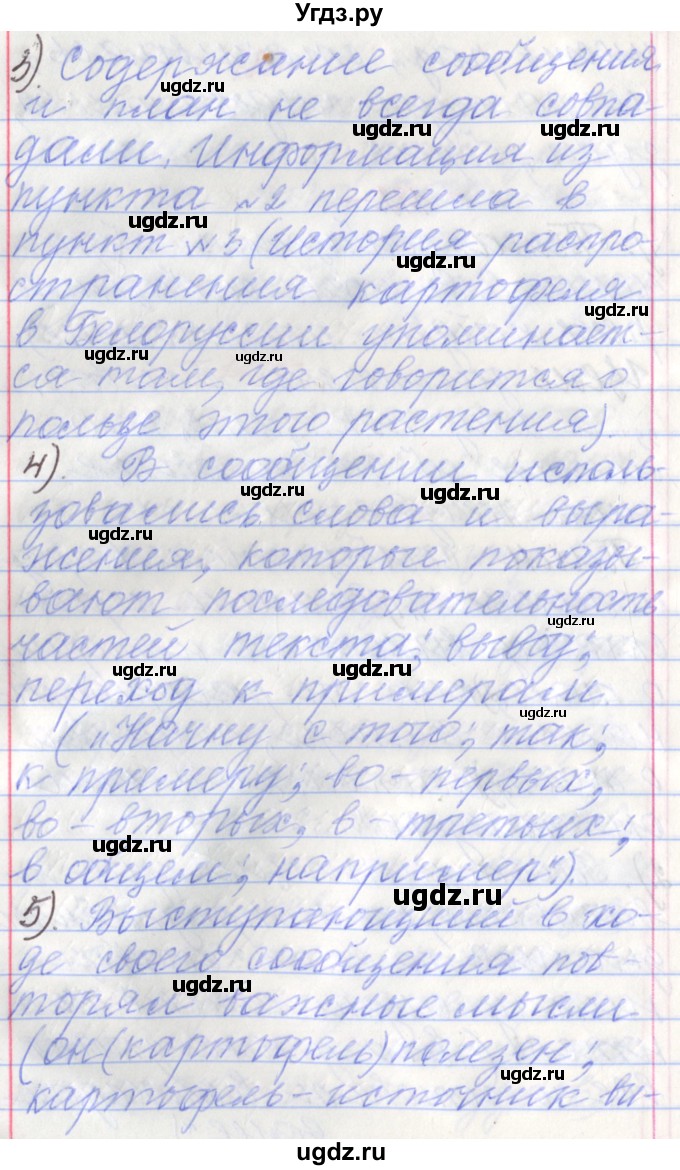 Угдз.ру
3). Содержание сообщения
ugdz.ru
и план не всегда совпа-
ugdz.ru ugdz.ru
дали. Информация из
пункта №2 перешла в
ugdz.ru
пункт №3 (История распро-
ugdz.ru
странения картофеля
ugdz.ru
в Белоруссии упоминает-
ugdz.ru ugdz.ru
ся там, где говорится о
пользе этого растения).
4). В сообщении исполь-
ugdz.ru ugdz.ru
зовались слова и выра-
ugdz.ru
жения, которые показы-
вают последовательность
ugdz.ru
частей текста; вывод;
ugdz.ru ugdz.ru
переход к примерам.
ugdz.ru
("Начну с того; так;
к примеру; во-первых,
во-вторых, в-третьих;
ugdz.ru
в общем; например.)
ugdz.ru
5). Выступающий в хо-
де своего сообщения пов-
ugdz.ru
торял важные мысли
(он (картофель) полезен;
ugdz.ru
картофель-источник ви-
ugdz.ru